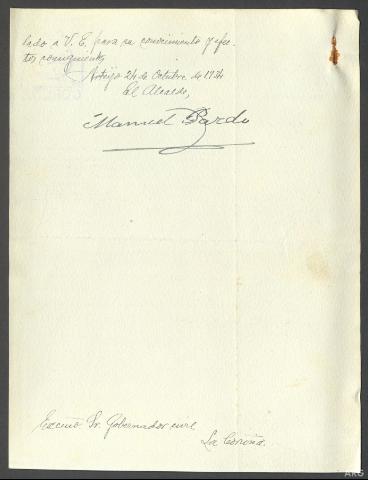 lado a V. E. para su conocimiento y efec-
tos consiguientes
Arteijo 24 de Octubre de 1934
El Alcalde,
Manuel Pardo
Excmo Sr. Gobernador civil
La Coruña.
ARG